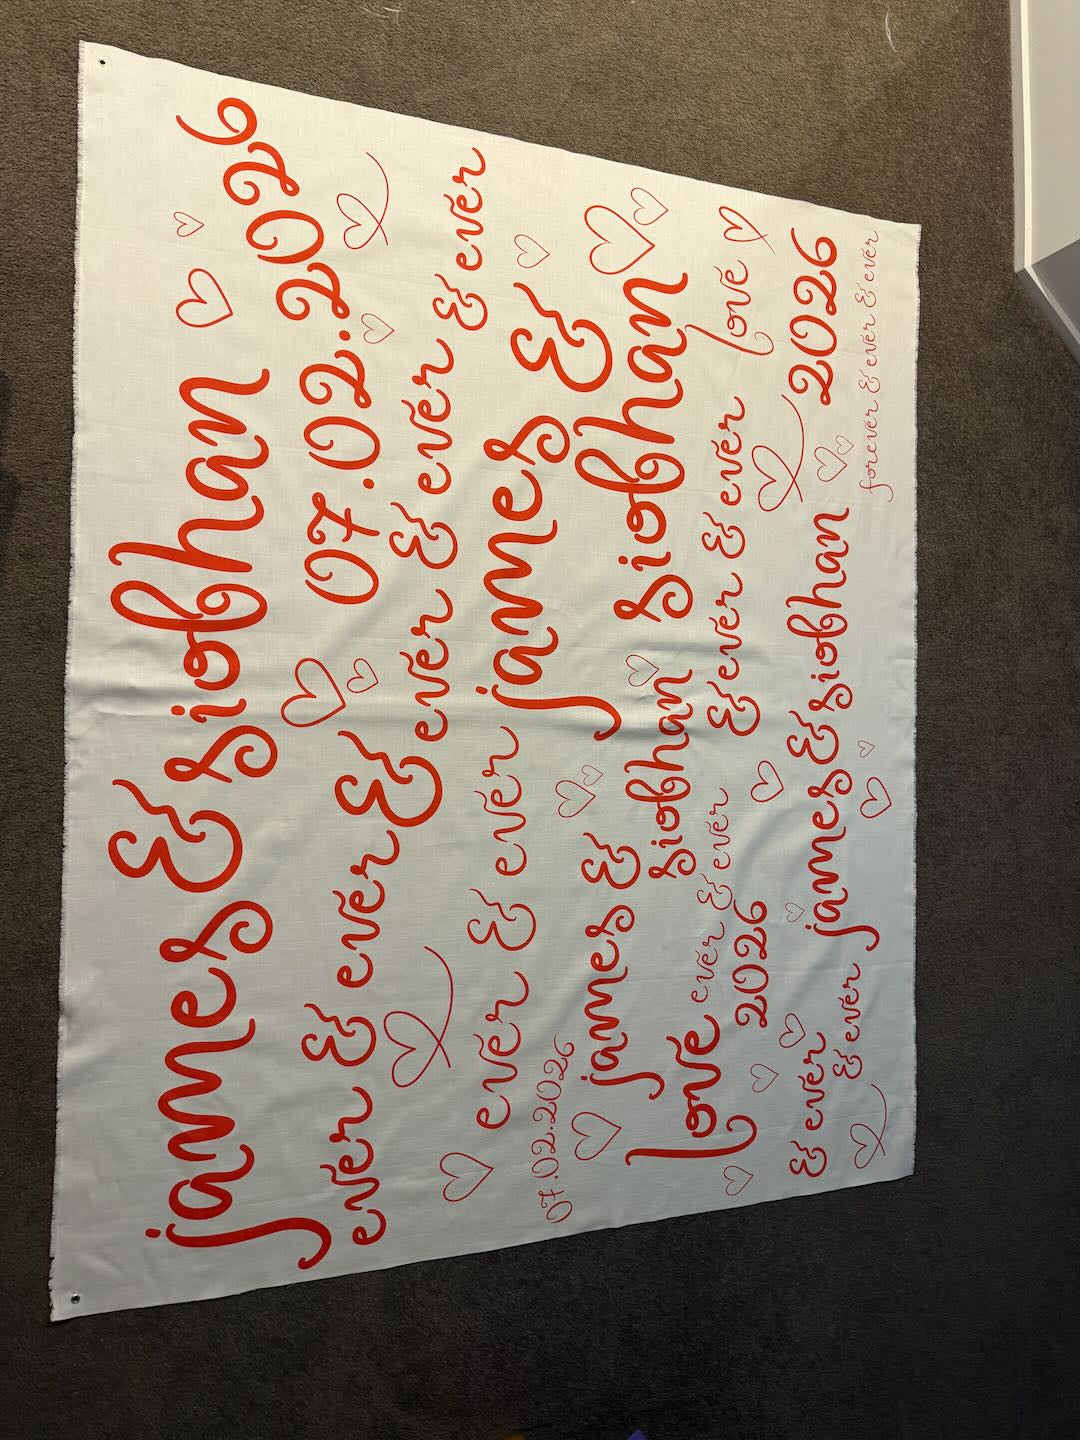 james & siobhan
07.02.2026
ever & ever & ever & ever & ever
ever & ever
james &
siobhan
07.02.2026
james &
siobhan
love
ever & ever
2026
& ever & ever
love
2026
& ever
& ever
james & siobhan
forever & ever & ever